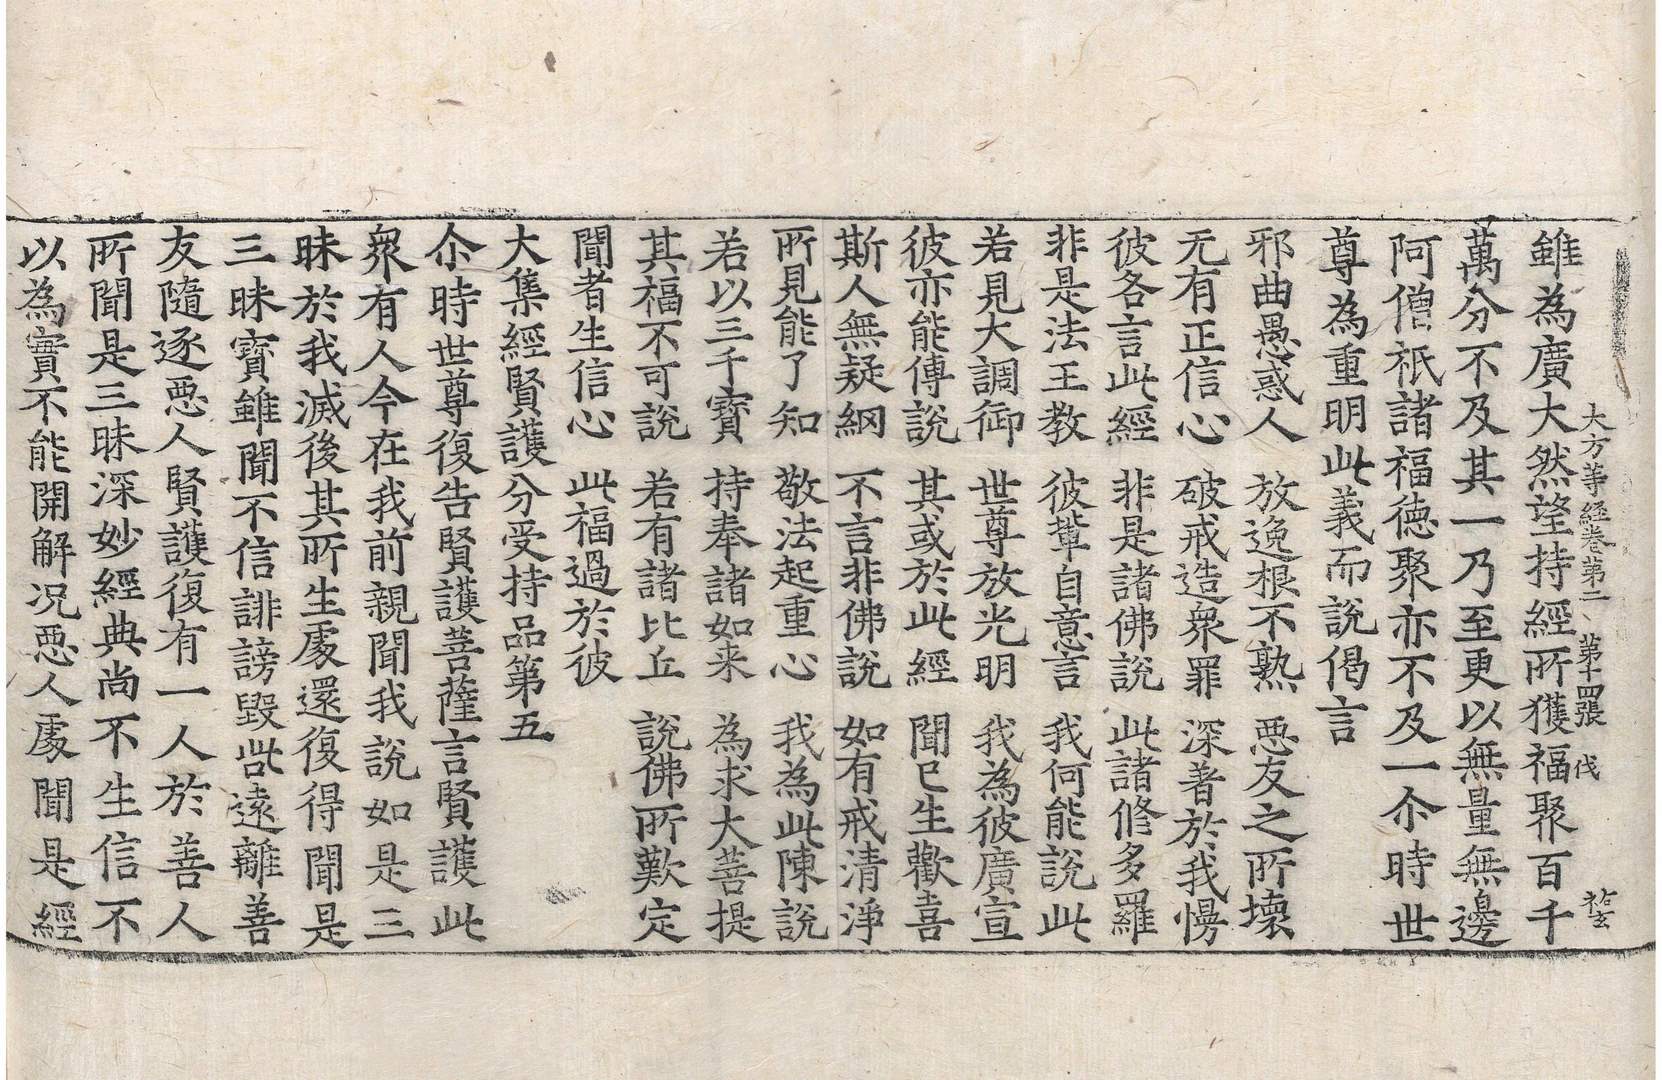 大方等経卷第二　第十四張　伐　祐玄
雖為廣大然望持經所獲福聚百千
萬分不及其一乃至更以無量無邊
阿僧祇諸福徳聚亦不及一尒時世
尊為重明此義而說偈言
邪曲愚惑人　放逸根不熟　惡友之所壞
无有正信心　破戒造衆罪　深著於我慢
彼各言此經　非是諸佛說　此諸修多羅
非是法王教　彼輩自意言　我何能說此
若見大調御　世尊放光明　我為彼廣宣
彼亦能傳說　其或於此經　聞已生歡喜
斯人無疑網　不言非佛說　如有戒清淨
所見能了知　敬法起重心　我為此陳說
若以三千寶　持奉諸如来　為求大菩提
其福不可說　若有諸比丘　說佛所歎定
聞者生信心　此福過於彼
大集經賢護分受持品第五
尒時世尊復告賢護菩薩言賢護此
衆有人今在我前親聞我說如是三
昧於我滅後其所生處還復得聞是
三昧寶雖聞不信誹謗毀呰遠離善
友隨逐惡人賢護復有一人於善人
所聞是三昧深妙經典尚不生信不
以為實不能開解況惡人處聞是經